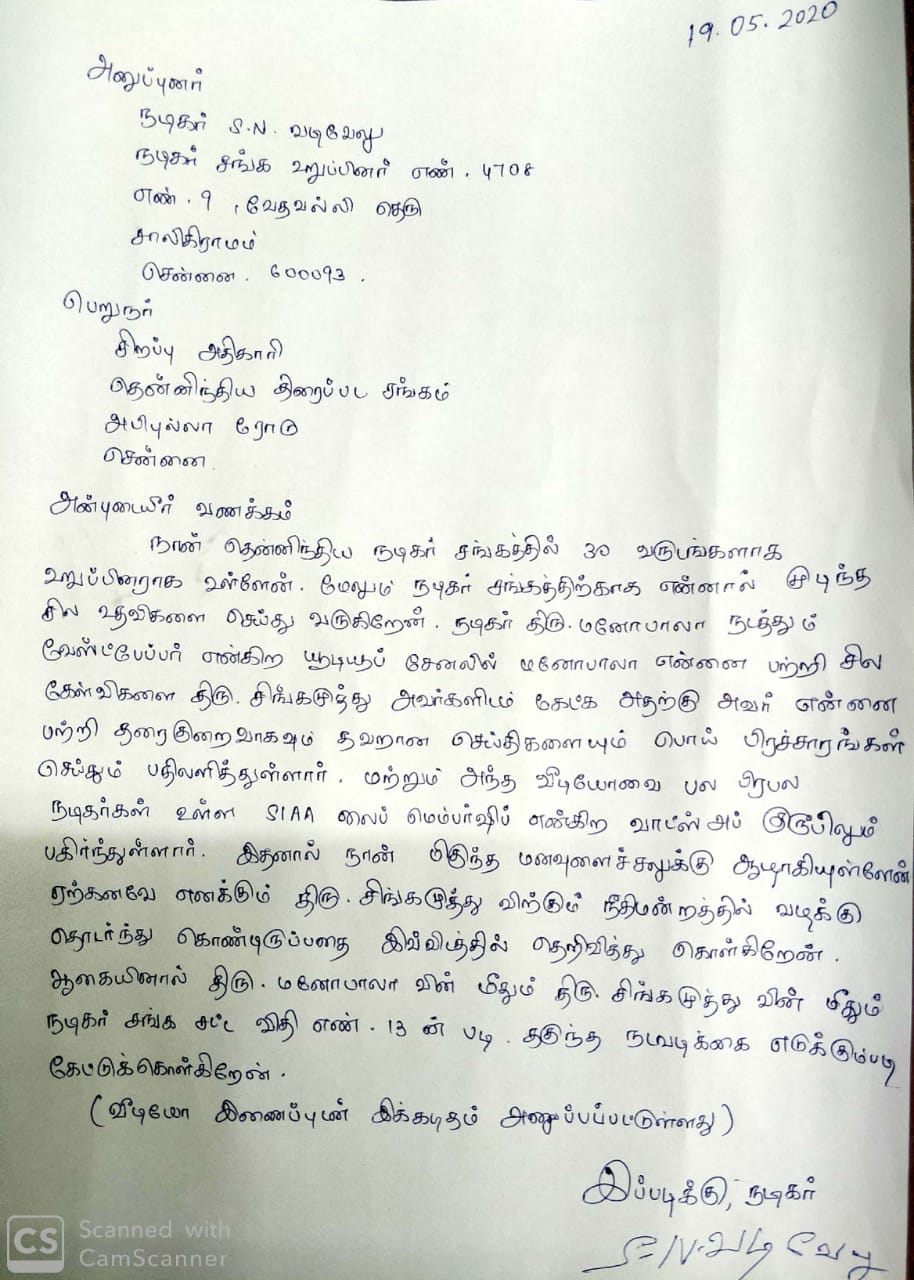 19.05.2020
அனுப்புனர்
நடிகர் S.N. வடிவேலு
நடிகர் சங்க உறுப்பினர் எண். 4708
எண். 9, வேதவல்லி தெரு
சாலிகிராமம்
சென்னை. 600093.
பெறுநர்
சிறப்பு அதிகாரி
தென்னிந்திய திரைப்பட சங்கம்
அபிபுல்லா ரோடு
சென்னை.
அன்புடையீர் வணக்கம்
நான் தென்னிந்திய நடிகர் சங்கத்தில் 30 வருடங்களாக
உறுப்பினராக உள்ளேன். மேலும் நடிகர் சங்கத்திற்காக என்னால் முடிந்த
சில உதவிகளை செய்து வருகிறேன். நடிகர் திரு. மனோபாலா நடத்தும்
வேஸ்ட்பேப்பர் என்கிற யூடியூப் சேனலில் மனோபாலா என்னை பற்றி சில
கேள்விகளை திரு. சிங்கமுத்து அவர்களிடம் கேட்க அதற்கு அவர் என்னை
பற்றி தரைகுறைவாகவும் தவறான செய்திகளையும் பொய் பிரச்சாரங்கள்
செய்தும் பதிலளித்துள்ளார். மற்றும் அந்த வீடியோவை பல பிரபல
நடிகர்கள் உள்ள SIAA லைப் மெம்பர்ஷிப் என்கிற வாட்ஸ் அப் குரூபிலும்
பகிர்ந்துள்ளார். இதனால் நான் மிகுந்த மனவுளைச்சலுக்கு ஆளாகியுள்ளேன்
ஏற்கனவே எனக்கும் திரு. சிங்கமுத்து விற்கும் நீதிமன்றத்தில் வழக்கு
தொடர்ந்து கொண்டிருப்பதை இவ்விடத்தில் தெறிவித்து கொள்கிறேன்.
ஆகையினால் திரு. மனோபாலா வின் மீதும் திரு. சிங்கமுத்து வின் மீதும்
நடிகர் சங்க சட்ட விதி எண். 13 ன் படி. தகுந்த நடவடிக்கை எடுக்கும்படி
கேட்டுக்கொள்கிறேன்.
(வீடியோ இணைப்புடன் இக்கடிதம் அனுப்பப்பட்டுள்ளது)
இப்படிக்கு, நடிகர்
S.N.வடிவேலு
CS Scanned with
CamScanner